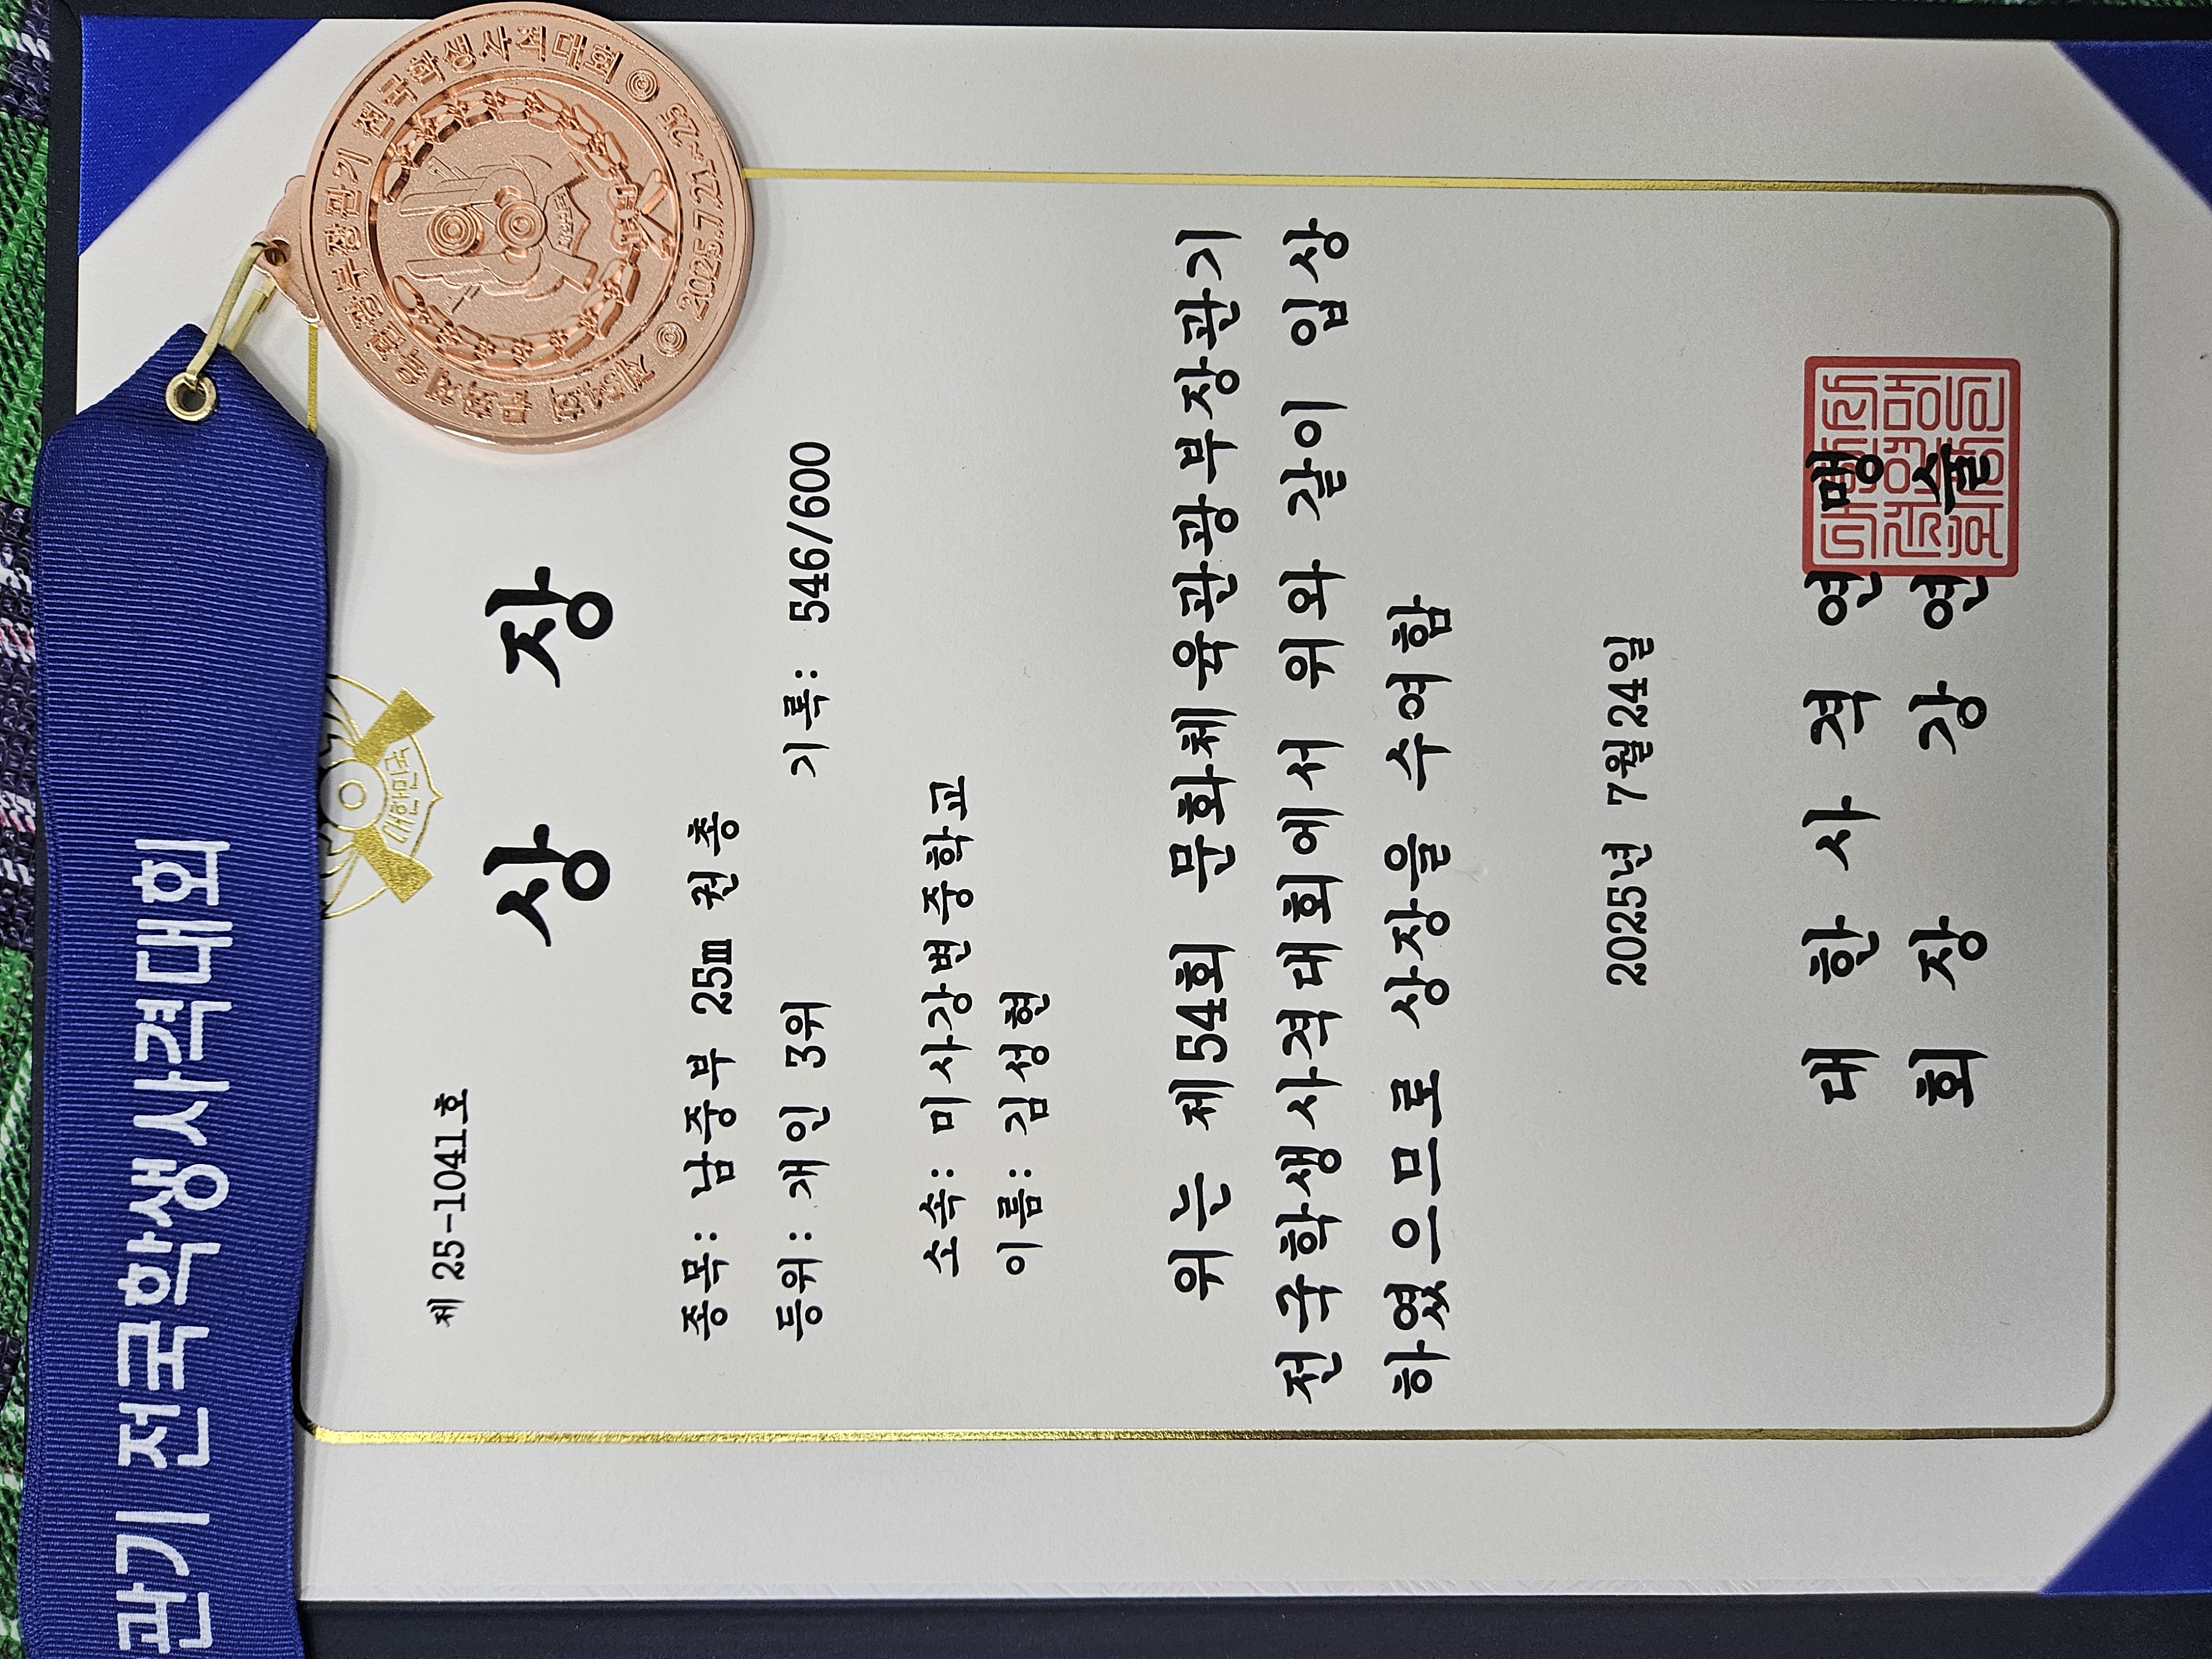 관기 전국학생사격대회
제54회 문화체육관광부장관기 전국학생사격대회
2025.7.21~25
대한민국
제 25-1041호
상 장
종목: 남중부 25m 권총
등위: 개인 3위 기록: 546/600
소속: 미사강변중학교
이름: 김성현
위는 제54회 문화체육관광부장관기
전국학생사격대회에서 위와 같이 입상
하였으므로 상장을 수여함
2025년 7월24일
대 한 사 격 연 맹
회 장 강 연 술